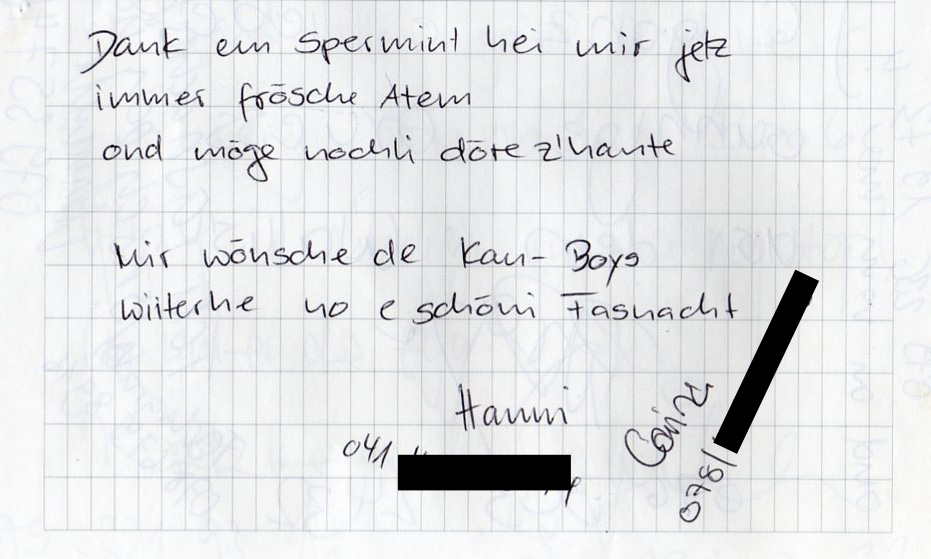 Dank em Spermint hei mir jetz
immer frösche Atem
ond möge nochli döre z'hante
Mir wönsche de Kau-Boys
wiiterhe no e schöni Fasnacht
Hanni
041
078/